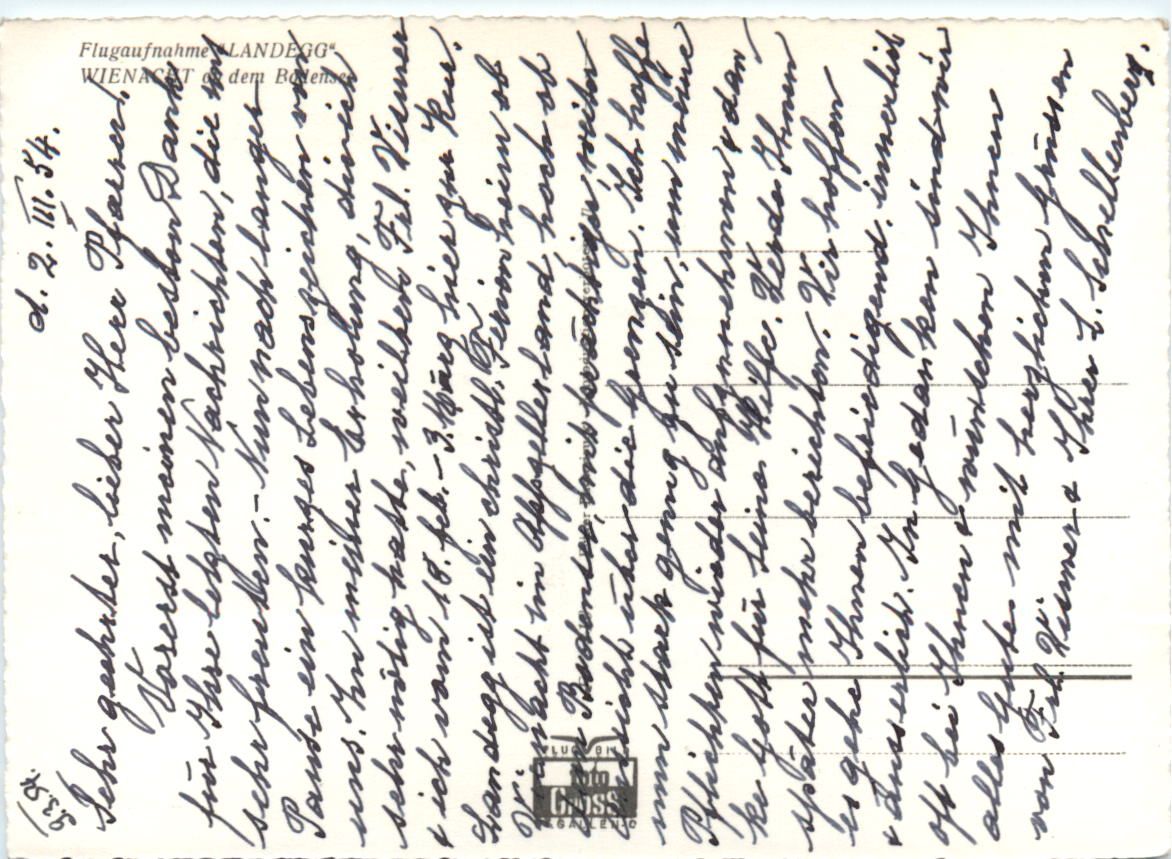 Flugaufnahme "LANDEGG"
WIENACHT ob dem Bodensee
d. 2. III. 54.
9.3.54.
Sehr geehrter, lieber Herr Pfarrer!
Vorerst meinen besten Dank
für Ihre letzten Nachrichten, die mich
sehr freuten. – Nun nach langer
Pause ein kurzes Lebenszeichen von
uns. Zu meiner Erholung, die ich
sehr nötig hatte, weilten Frl. Wismer
& ich vom 18. Feb. – 3. März hier zur Kur.
Landegg ist ein christl. Ferienheim ob
Wienacht im Appenzellerland, hoch ob
dem Bodensee, mit prächtiger, weiter
Aussicht über die Grenzen. Ich hoffe
nun stark genug zu sein, um meine
Pflichten wieder aufzunehmen & dan-
ke Gott für seine Hilfe. Werde Ihnen
später mehr berichten. Wir hoffen
es gehe Ihnen befriedigend, innerlich
& äusserlich. In Gedanken sind wir
oft bei Ihnen & wünschen Ihnen
alles Gute mit herzlichen Grüssen
von Frl. Wismer & Ihrer L. Schellenberg.
FLUGBILD
foto
GROSS
ST.GALLEN-O